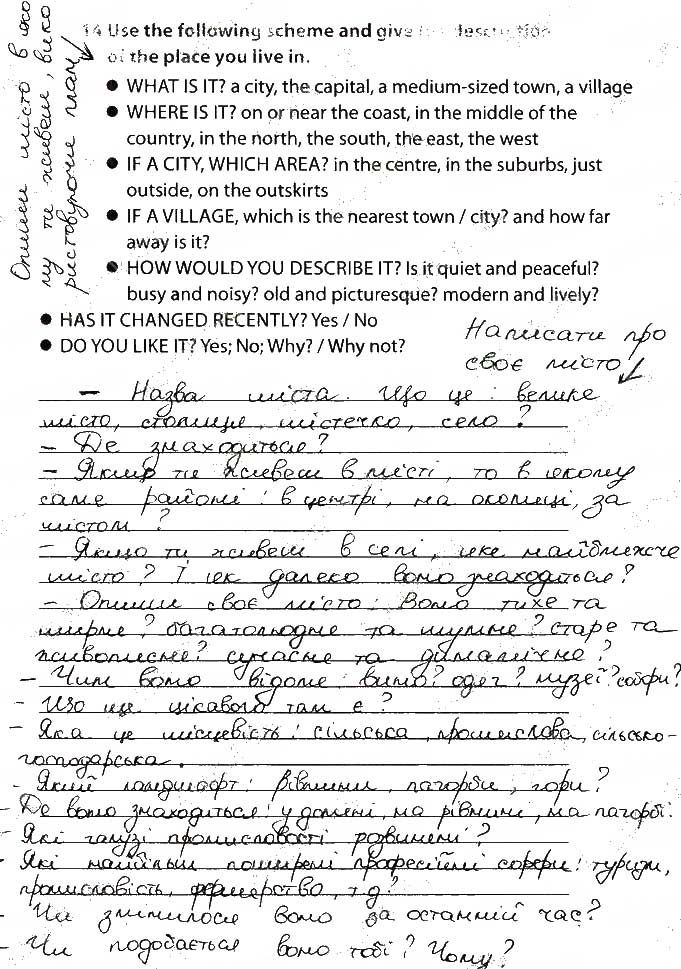 14 Use the following scheme and give description
of the place you live in.
● WHAT IS IT? a city, the capital, a medium-sized town, a village
● WHERE IS IT? on or near the coast, in the middle of the
country, in the north, the south, the east, the west
● IF A CITY, WHICH AREA? in the centre, in the suburbs, just
outside, on the outskirts
● IF A VILLAGE, which is the nearest town / city? and how far
away is it?
● HOW WOULD YOU DESCRIBE IT? Is it quiet and peaceful?
busy and noisy? old and picturesque? modern and lively?
● HAS IT CHANGED RECENTLY? Yes / No
● DO YOU LIKE IT? Yes; No; Why? / Why not?
Опиши місто в яко
му ти живеш, вико
ристовуючи план
Написати про
своє місто
– Назва міста. Що це: велике
місто, столиця, містечко, село?
– Де знаходиться?
– Якщо ти живеш в місті, то в якому
саме районі: в центрі, на околиці, за
містом?
– Якщо ти живеш в селі, яке найближче
місто? І як далеко воно знаходиться?
– Опиши своє місто: Воно тихе та
мирне? багатолюдне та шумне? старе та
живописне? сучасне та динамічне?
– Чим воно відоме: вино? одяг? музеї? собори?
– Що ще цікавого там є?
– Яка це місцевість: сільська, промислова, сільсько-
господарська.
– Який ландшафт: рівнини, пагорби, гори?
– Де воно знаходиться: у долині, на рівнині, на пагорбі.
Які галузі промисловості розвинені?
– Які найбільш поширені професійні сфери: туризм,
промисловість, фермерство, т.д?
– Чи змінилося воно за останній час?
– Чи подобається воно тобі? Чому?